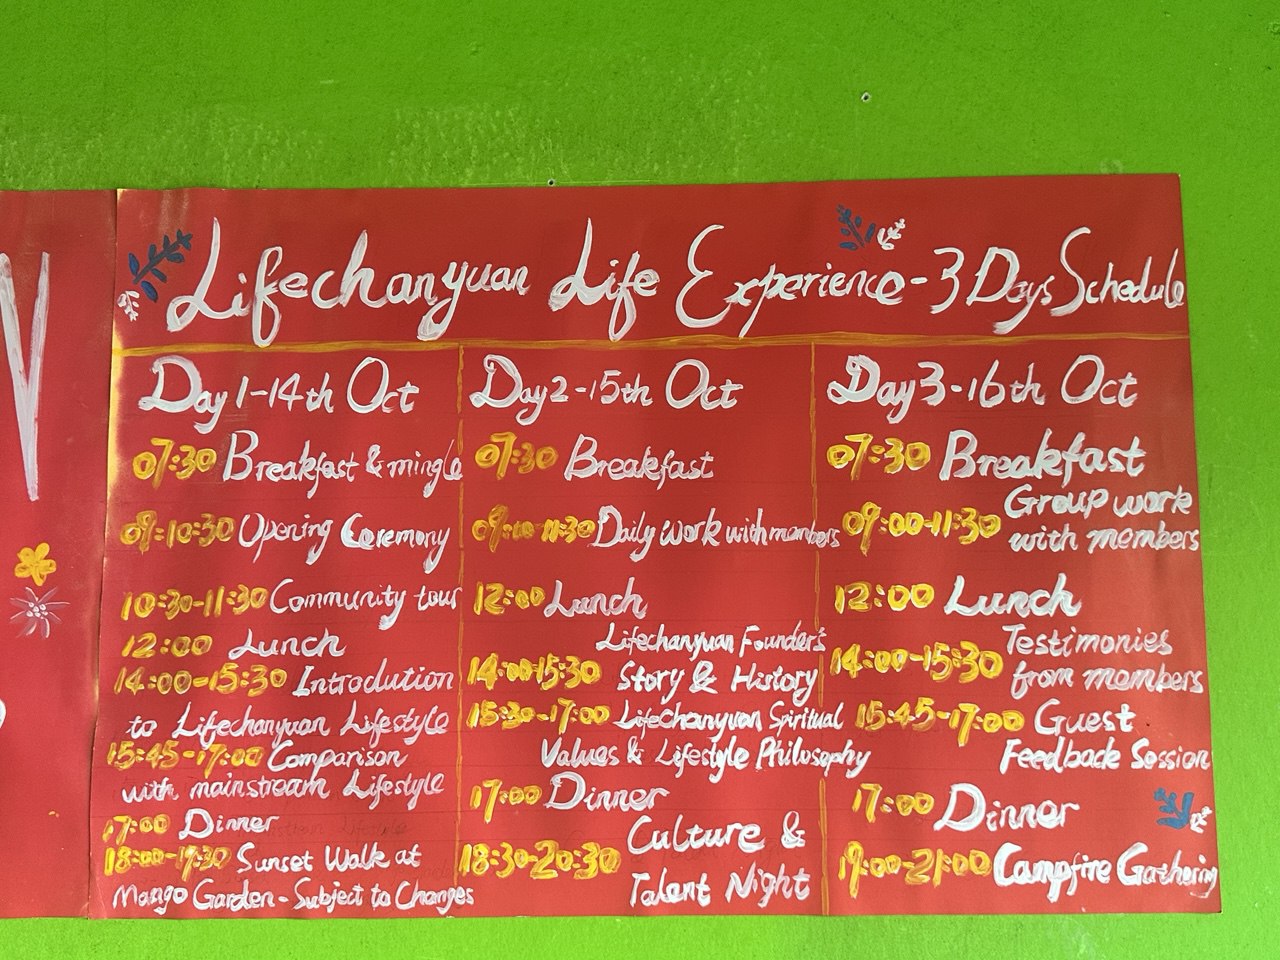 Lifechanyuan Life Experience-3 Days Schedule
Day 1-14th Oct
07:30 Breakfast & mingle
09:10:30 Opening Ceremony
10:30-11:30 Community tour
12:00 Lunch
14:00-15:30 Introdution
to Lifechanyuan Lifestyle
15:45-17:00 Comparison
with mainstream Lifestyle
17:00 Dinner
18:00-19:30 Sunset Walk at
Mango Garden-Subject to Changes
Day 2-15th Oct
07:30 Breakfast
Daily work with members
12:00 Lunch
Lifechanyuan Founder's
14:00-15:30 Story & History
15:30-17:00 Lifechanyuan Spiritual
Values & Lifestyle Philosophy
17:00 Dinner
Culture &
18:30-20:30
Talent Night
Day 3-16th Oct
07:30 Breakfast
Group work
09:00-11:30
with members
12:00 Lunch
Testimonies
14:00-15:30
from members
15:45-17:00 Guest
Feedback Session
17:00 Dinner
19:00-21:00 Campfire Gathering